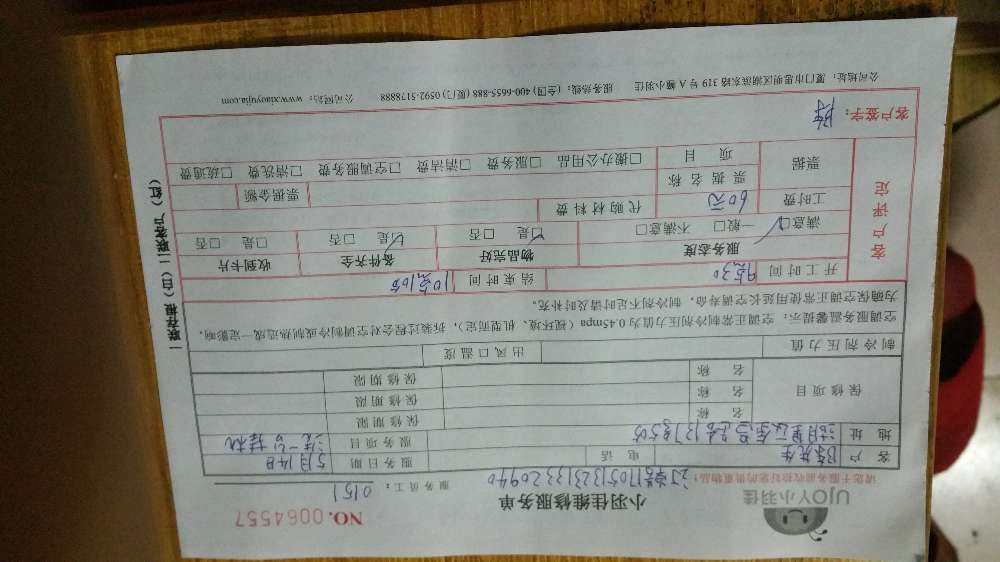 UJOY小羽佳
小羽佳维修服务单
NO.0064557
请您于服务前收检好您的贵重物品!
订单号1705132313320940
服务员工：0151
客户 陈先生 电话 服务日期 5月14日
地址 服务项目 洗一台挂机
保修项目
名称 保修期限
名称 保修期限
名称 保修期限
制冷剂压力值 出风口温度
空调服务温馨提示：空调正常制冷剂压力值为0.45mpa（视环境、机型而定），拆装过程会对空调制冷或制热造成一定影响，
为确保空调正常使用延长空调寿命，制冷剂不足时请及时补充。
客户评定
开工时间 9点30 结束时间 10点10分
服务态度 物品完好 备件齐全 收到卡片
满意□ 一般□ 不满意□ □是 □否 □是 □否 □是 □否
工时费 60元 代购材料费
票据 票据名称 票据金额
项目 □搬办公用品 □服务费 □清洁费 □空调服务费 □清洗费 □疏通费
客户签字：陈
公司地址：厦门市思明区湖滨东路319号A幢小羽佳 服务热线：(全国) 400-6655-888 (厦门) 0592-5178888 公司网站：www.xiaoyujia.com
一联存根（白）二联客户（红）